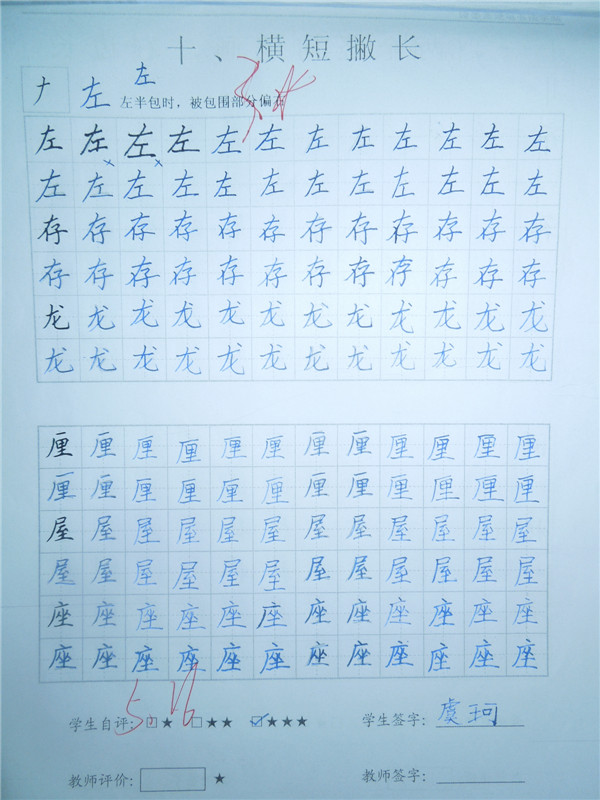 十、横短撇长
𠂇 左 左
左半包时，被包围部分偏右
左左左左左左左左左左左左
左左左左左左左左左左左左
存存存存存存存存存存存存
存存存存存存存存存存存存
龙龙龙龙龙龙龙龙龙龙龙龙
龙龙龙龙龙龙龙龙龙龙龙龙
厘厘厘厘厘厘厘厘厘厘厘厘
厘厘厘厘厘厘厘厘厘厘厘厘
屋屋屋屋屋屋屋屋屋屋屋屋
屋屋屋屋屋屋屋屋屋屋屋屋
座座座座座座座座座座座座
座座座座座座座座座座座座
5.16
学生自评: □★ □★★ ☑★★★ 学生签字: 虞珂
教师评价: ★ 教师签字: